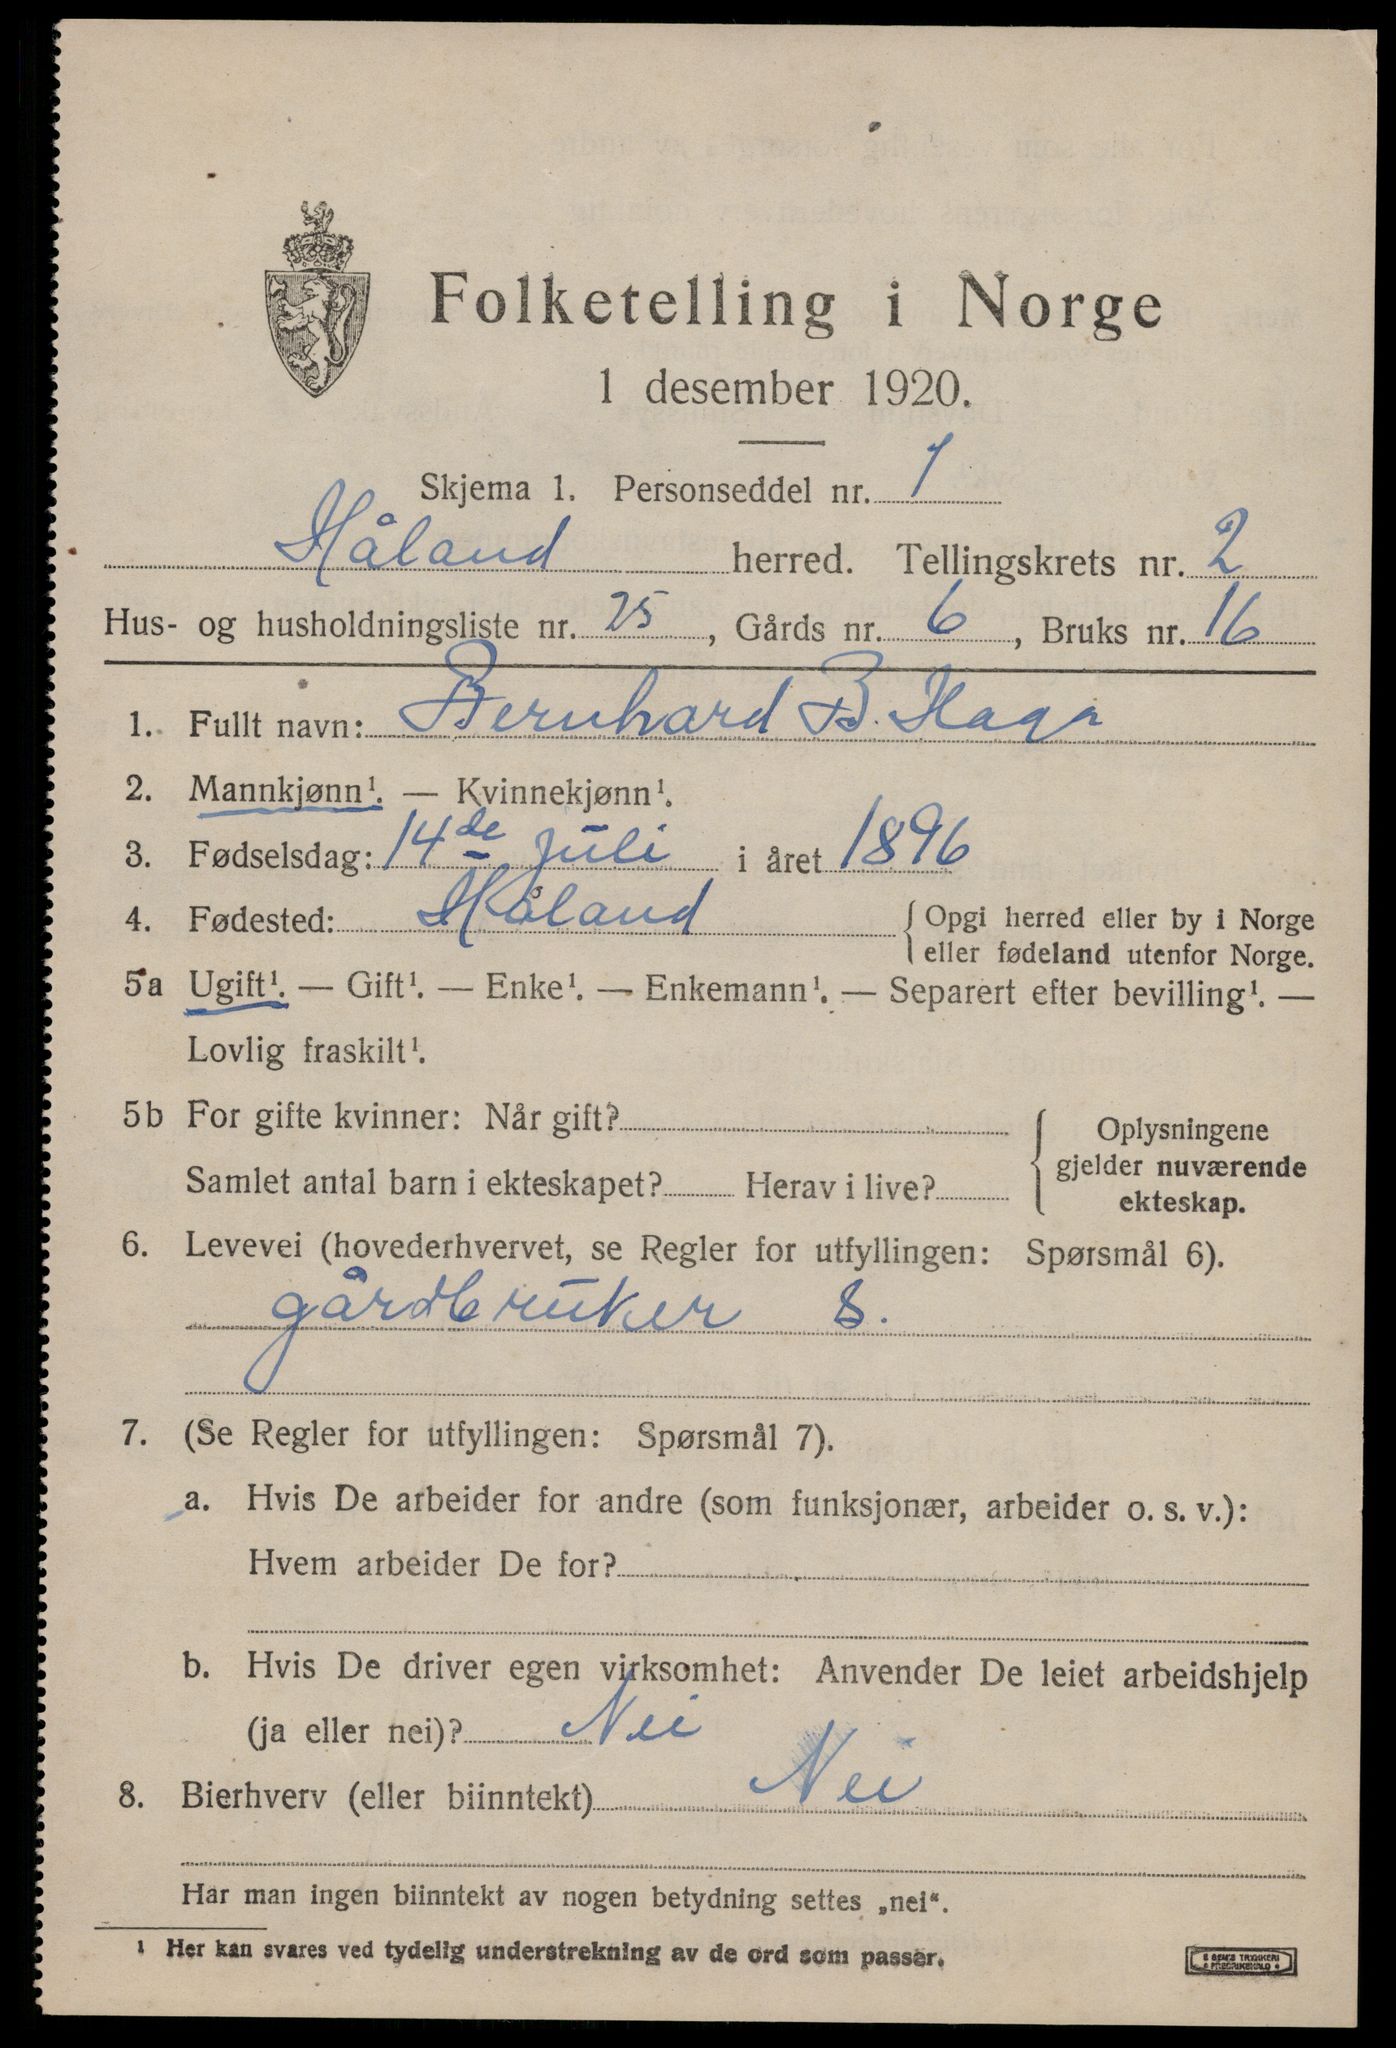 Folketelling i Norge
1 desember 1920.
Skjema 1. Personseddel nr. 1
Håland herred. Tellingskrets nr. 2
Hus- og husholdningsliste nr. 25, Gårds nr. 6, Bruks nr. 16
1. Fullt navn: Bernhard B. Haga
2. Mannkjønn¹. — Kvinnekjønn¹.
3. Fødselsdag: 14de juli i året 1896
4. Fødested: Håland {Opgi herred eller by i Norge
eller fødeland utenfor Norge.
5a Ugift¹. — Gift¹. — Enke¹. — Enkemann¹. — Separert efter bevilling¹. —
Lovlig fraskilt¹.
5b For gifte kvinner: Når gift?
Samlet antal barn i ekteskapet? Herav i live?
Oplysningene
gjelder nuværende
ekteskap.
6. Levevei (hovederhvervet, se Regler for utfyllingen: Spørsmål 6).
gårdbruker S.
7. (Se Regler for utfyllingen: Spørsmål 7).
a. Hvis De arbeider for andre (som funksjonær, arbeider o. s. v.):
Hvem arbeider De for?
b. Hvis De driver egen virksomhet: Anvender De leiet arbeidshjelp
(ja eller nei)? Nei
8. Bierhverv (eller biinntekt) Nei
Har man ingen biinntekt av nogen betydning settes „nei“.
¹ Her kan svares ved tydelig understrekning av de ord som passer.